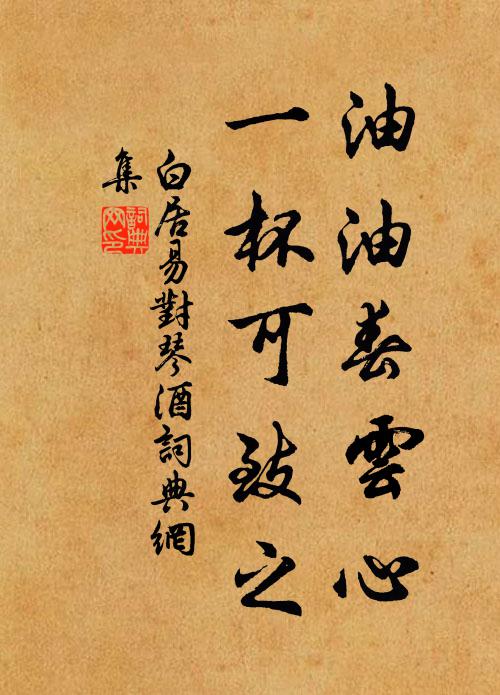 油油春雲心
一杯可致之
白居易對琴酒詞典網
集
詞典
网印